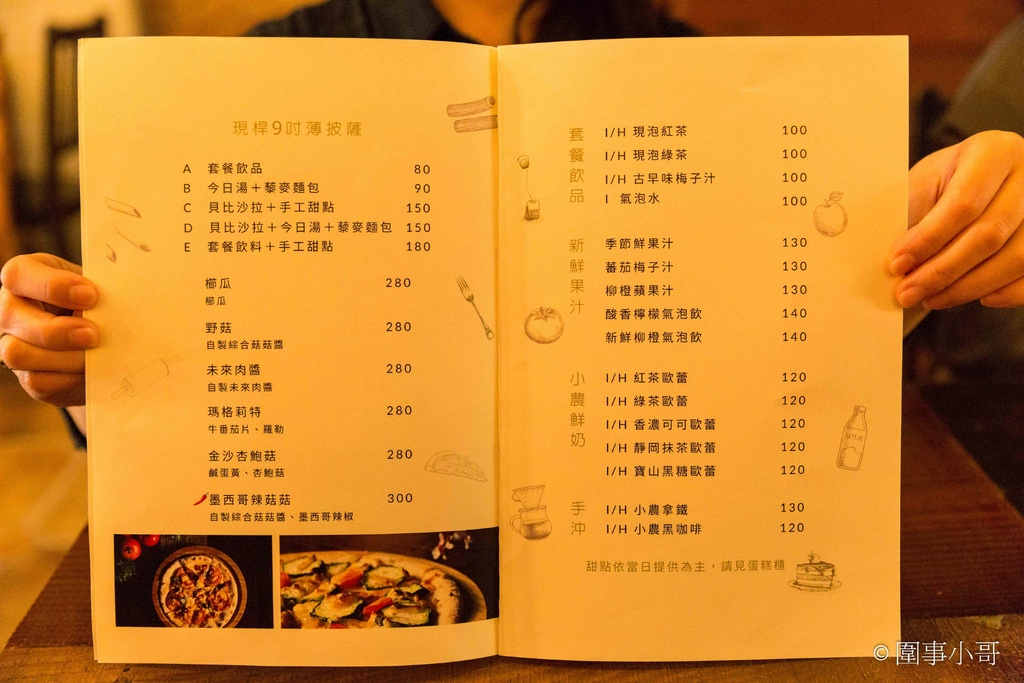 現桿9吋薄披薩
A 套餐飲品 80
B 今日湯＋藜麥麵包 90
C 貝比沙拉＋手工甜點 150
D 貝比沙拉＋今日湯＋藜麥麵包 150
E 套餐飲料＋手工甜點 180
櫛瓜 280
櫛瓜
野菇 280
自製綜合菇菇醬
未來肉醬 280
自製未來肉醬
瑪格莉特 280
牛番茄片、羅勒
金沙杏鮑菇 280
鹹蛋黃、杏鮑菇
墨西哥辣菇菇 300
自製綜合菇菇醬、墨西哥辣椒
套餐飲品
I/H 現泡紅茶 100
I/H 現泡綠茶 100
I/H 古早味梅子汁 100
I 氣泡水 100
新鮮果汁
季節鮮果汁 130
蕃茄梅子汁 130
柳橙蘋果汁 130
酸香檸檬氣泡飲 140
新鮮柳橙氣泡飲 140
小農鮮奶
I/H 紅茶歐蕾 120
I/H 綠茶歐蕾 120
I/H 香濃可可歐蕾 120
I/H 靜岡抹茶歐蕾 120
I/H 寶山黑糖歐蕾 120
手沖
I/H 小農拿鐵 130
I/H 小農黑咖啡 120
甜點依當日提供為主，請見蛋糕櫃
© 圍事小哥